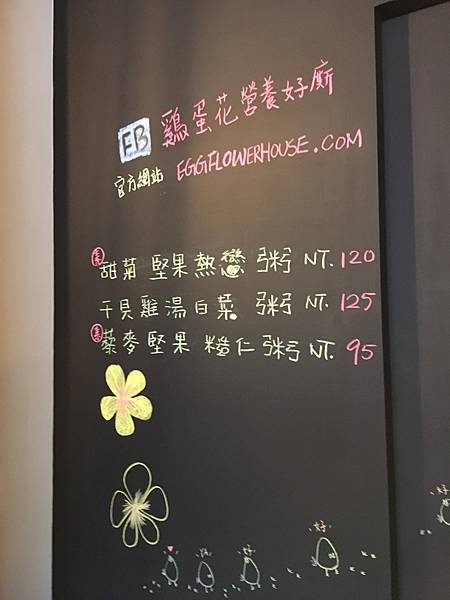 EB 鷄蛋花營養好廚
官方網站 EGGFLOWERHOUSE.COM
素 甜菊 堅果熱戀 粥 NT. 120
干貝雞湯白菜 粥 NT. 125
素 藜麥堅果 糙仁粥 NT. 95
好
好
好
好